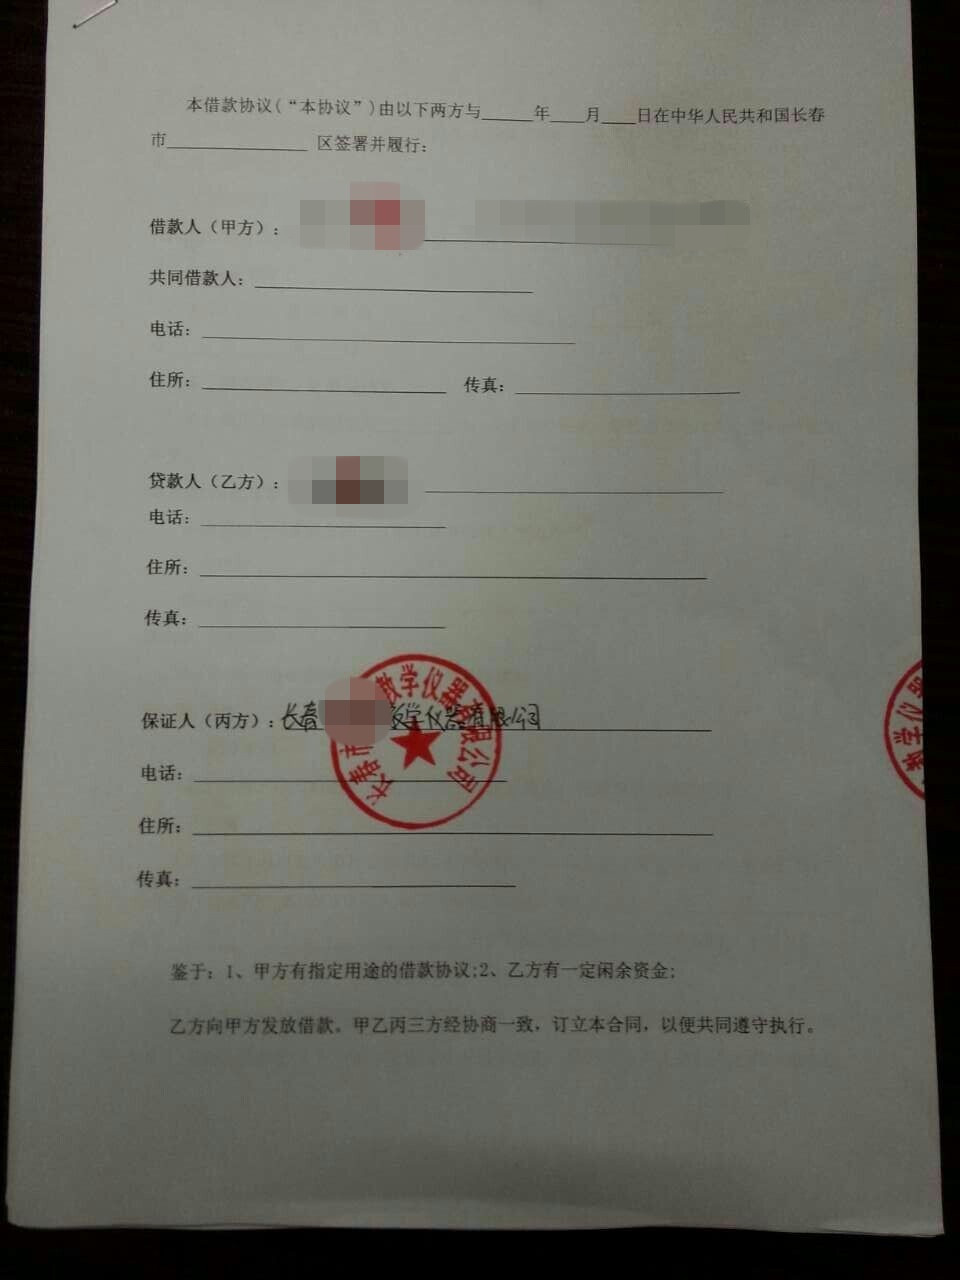 本借款协议(“本协议”)由以下两方与_____年___月___日在中华人民共和国长春
市______________ 区签署并履行:
借款人（甲方）:
共同借款人:
电话:
住所: 传真:
贷款人（乙方）:
电话:
住所:
传真:
教学仪器有限公司
长春市
保证人（丙方）: 长春 教学仪器有限公司
教学仪器
电话:
住所:
传真:
鉴于: 1、甲方有指定用途的借款协议;2、乙方有一定闲余资金;
乙方向甲方发放借款。甲乙丙三方经协商一致，订立本合同，以便共同遵守执行。